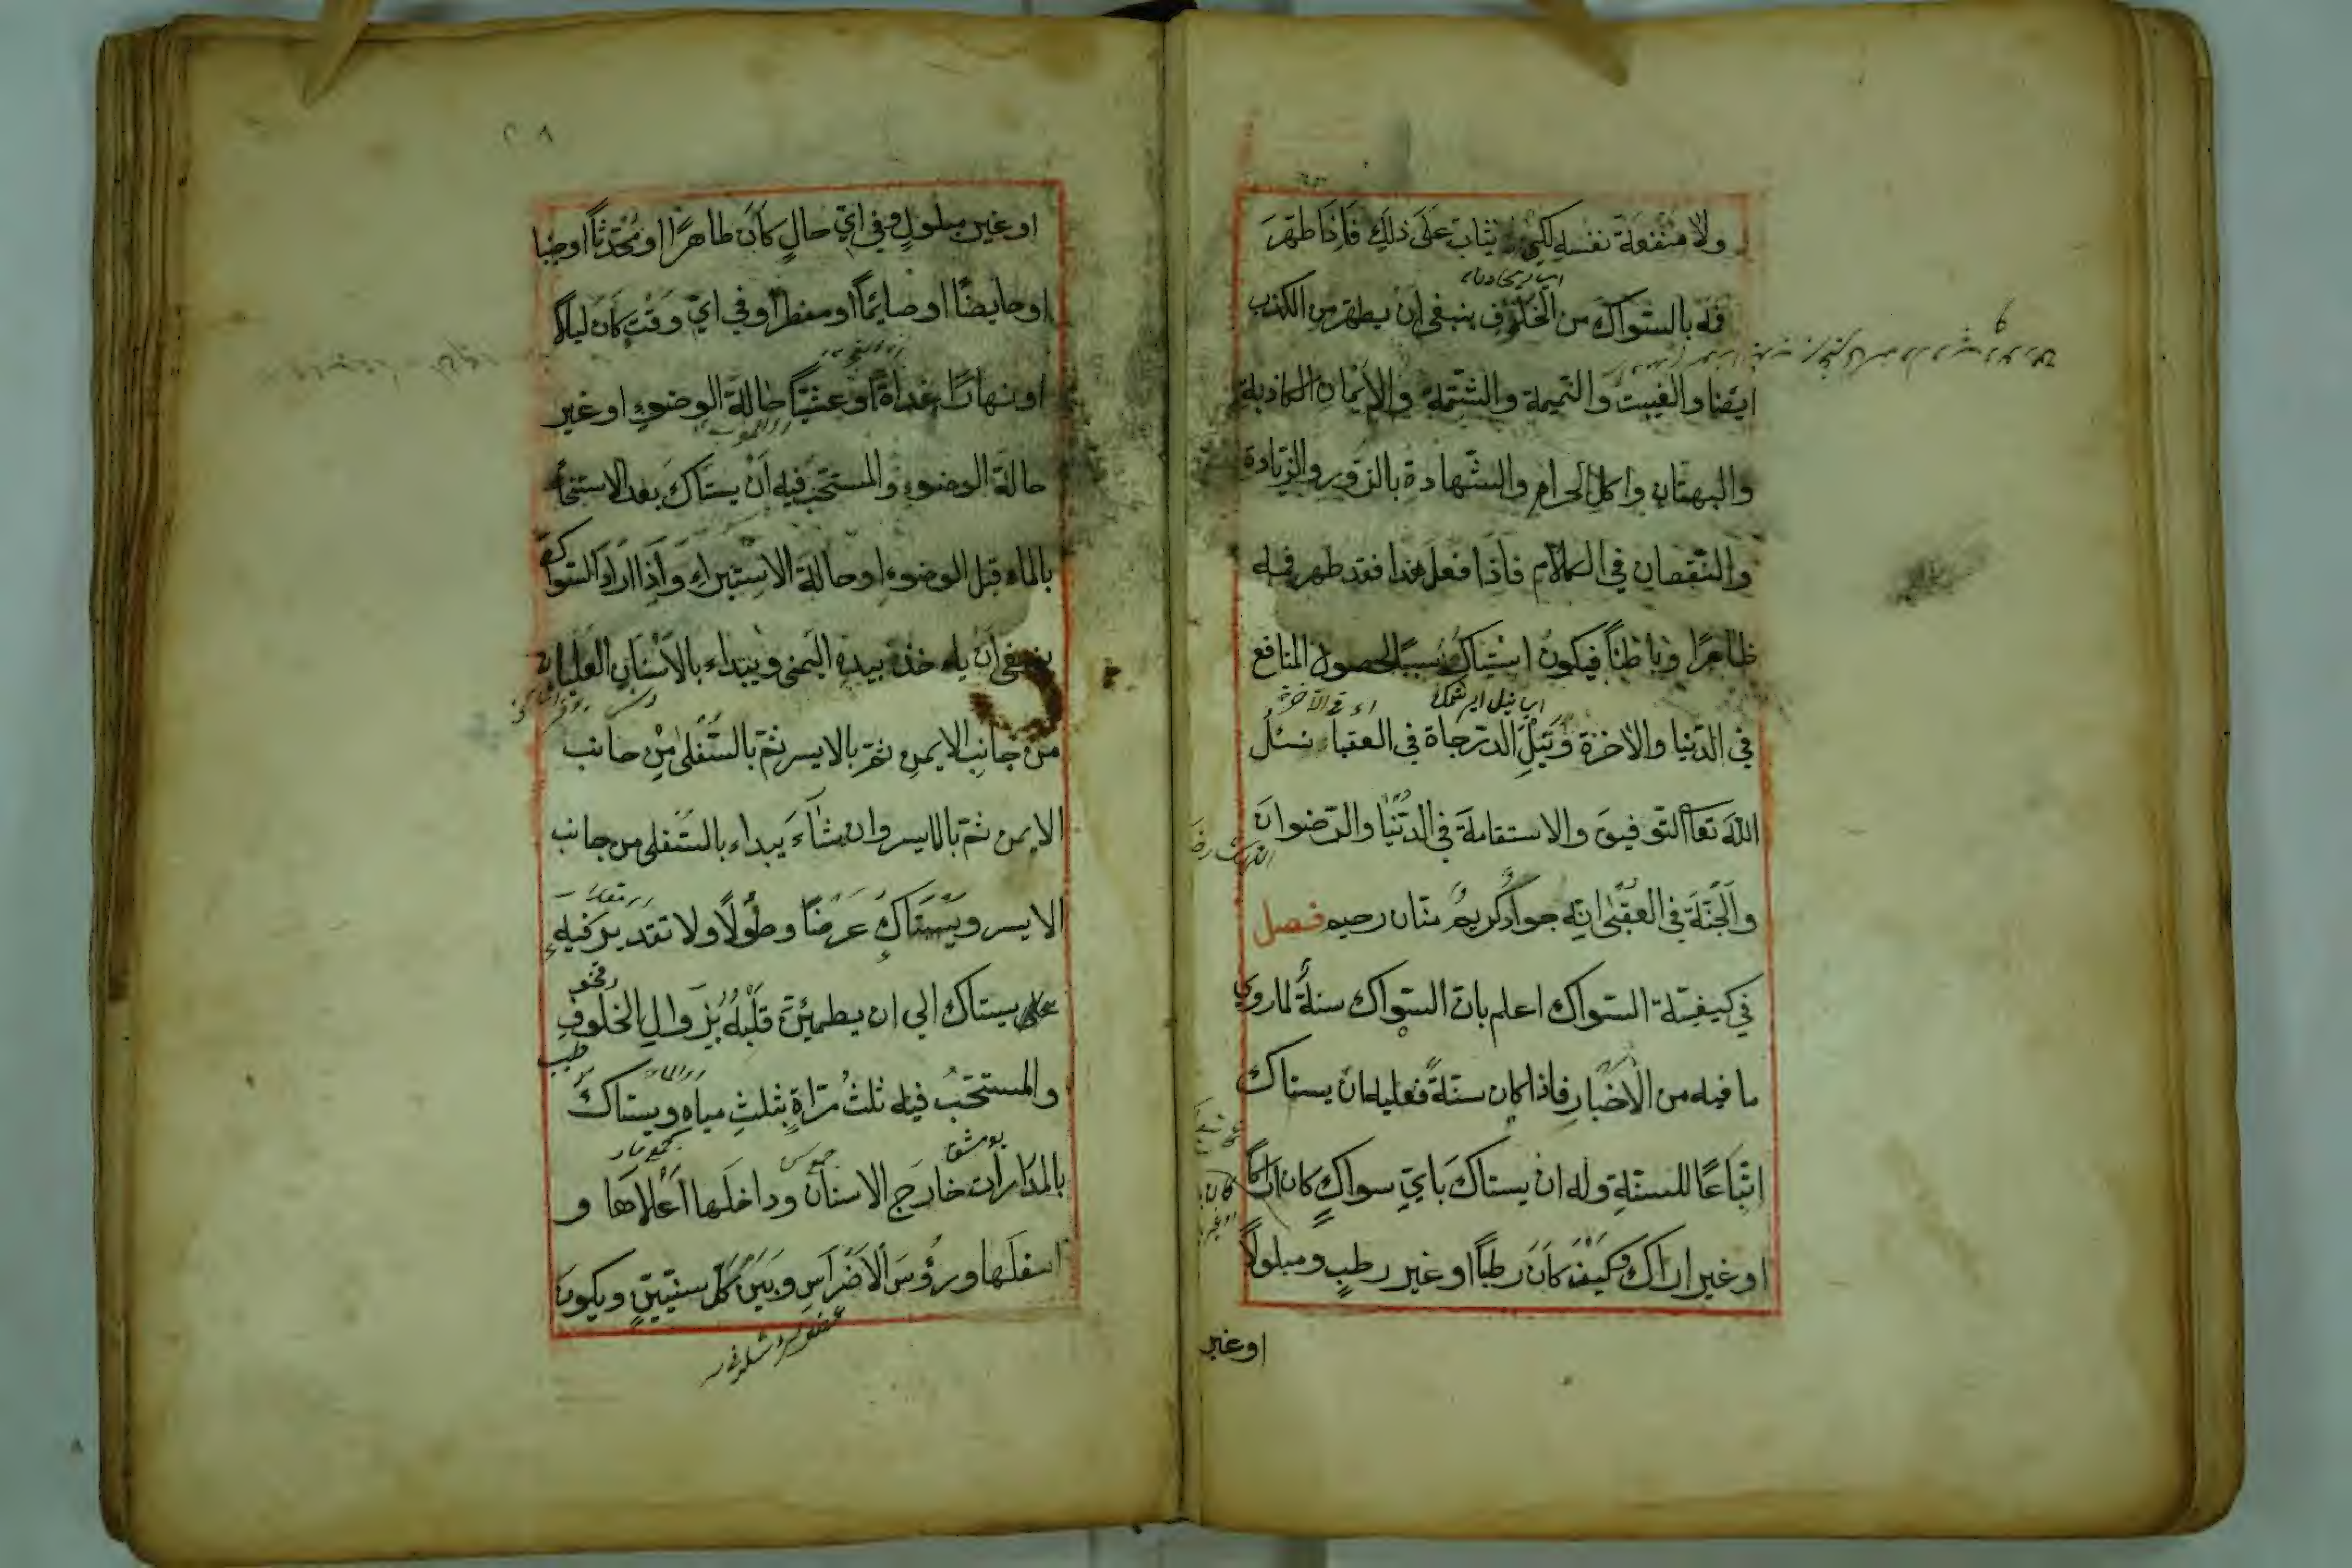 ولا منفعة نفسه لكي يثاب على ذلك فَاِذَا طَهَّرَ
فمَه بالسّواك من الخلوف ينبغي ان يطهر من الكذب
ايضا والغيبت والنّميمة والشّتمة والايمان الكاذبة
والبهتان واكل الحرام والشّهادة بالزّور والزّيادة
والنّقصان في الكلام فاذا فعل هذا فقد طهر فمه
ظاهرًا وباطنًا فيكون استياكه سببًا لحصول المنافع
في الدّنيا والآخرة ونَيْلِ الدّرجاة في العقبا نسئل
اللّه تعا التّوفيق والاستقامة في الدّنيا والرّضوان
والجَنّة في العقبٰى انّه جواد كريم منّان رحيم فصل
في كيفيّة السّواك اعلم بانّ السّواك سنّة لما روي
ما فيه من الاخبار فاذا كان سنّةً فعليه ان يستاك
اتّباعًا للسنّة وله ان يستاك بايّ سواكٍ كان اراكًا
او غير اراك وكيف كَانَ رطبًا او غير رطبٍ ومبلولًا
او غير
٢٠٨
او غير مبلولٍ وفي ايّ حالٍ كَانَ طاهرًا او مُحْدثًا او جنبا
او حايضًا او صايمًا او مفطرا وفي ايّ وَقْتٍ كان ليلًا
او نهارًا غداةً او عشيًّا حالة الوضوءِ او غير
حالة الوضوءِ والمستحبّ فيه اَنْ يستاكَ بعد الاستنجاء
بالماء قبل الوضوء او حالة الاستبراءِ وَاِذَا اراد السّواك
ينبغي اَن ياءخذه بيده اليمنى ويبتداء بالاسنان العليا
من جانب الايمن ثمّ بالايسر ثمّ بالسّفلى مِنْ جانب
الايمن ثمّ بالايسر وان شَاءَ يبداء بالسّفلى من جانب
الايسر ويَسْتَاكُ عرضًا وطولًا ولا تقدير فيه
يستاك الي ان يطمئنّ قَلْبُهُ بزوالِ الخلوفِ
والمستحَبّ فيه ثلثُ مرّاةٍ بثلثِ مياهٍ ويستاك
بالمدارات خارج الاسنان وداخلها اَعْلاهَا و
اسفلها ورؤسَ الاَضْرَاسِ وبَيْنَ كلّ سنّيّنِ ويكونَ